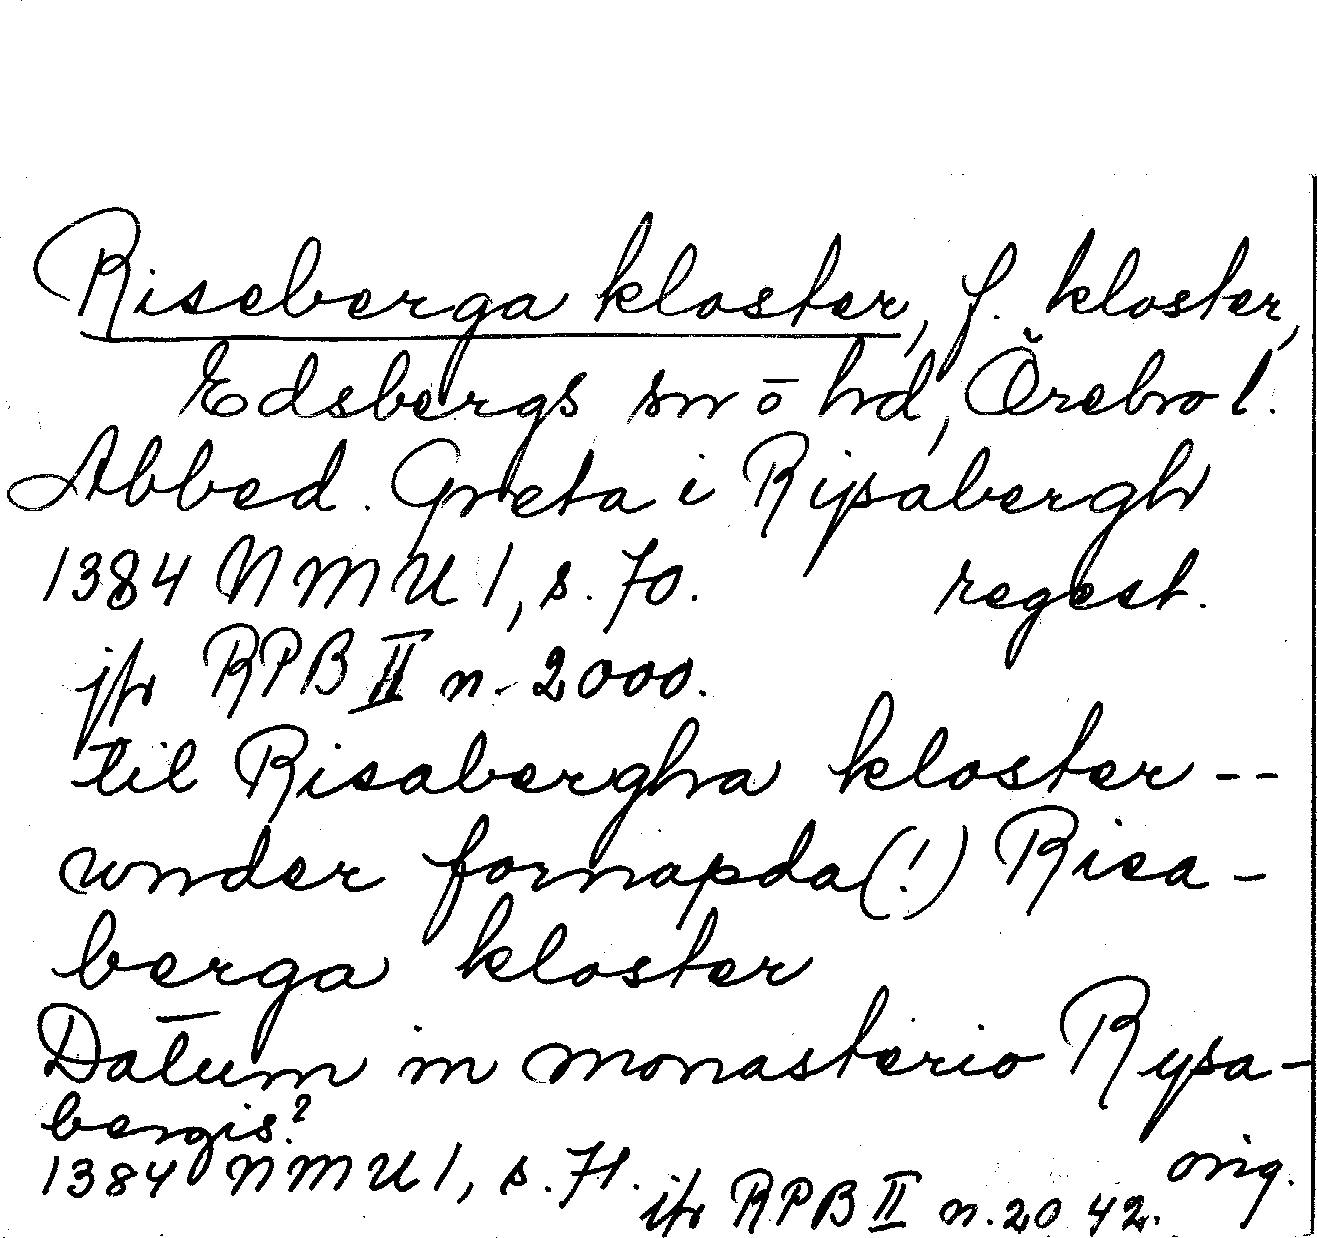 Riseberga kloster, f. kloster,
Edsbergs sn o hd, Örebro l.
Abbed. Greta i Risabergh
1384 NMU 1, s. 70. regest.
jfr RPB II n. 2000.
til Risabergha kloster --
vnder fornapda(!) Risa-
berga kloster
Datum in monasterio Rysa-
bergis?
1384 NMU 1, s. 71. orig.
jfr RPB II n. 2042.